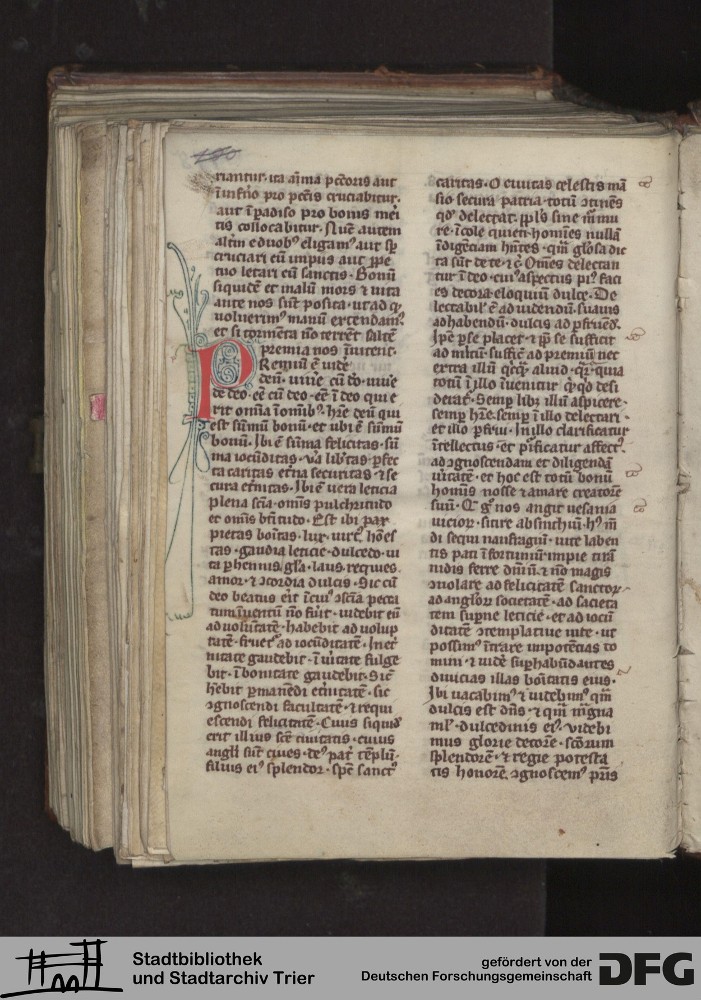 riantur· ita aīma pctōris aut
ī inf̄no pro pctīs cruciabitur·
aut ī padiso pro bonis mēi
tis collocabitur· Nūc autem
altm̄ e duobꝰ eligamꝰ aut sp̄
cruciari cū impus aut ppe
tuo letari cū sanctis· Bonū
siquidē et malū mors ⁊ uita
ante nos sūt posita· ut ad qͥ
uoluerimꝰ manū extendamꝰ
et si tormēta nō terrēt saltē
premia nos īuitent·
Remiū ē uide
deū· uiuͤe cū dō· uiuͤe
de deo· eē cū deo· eē ī deo qui e
rit omīa ī omībꝰ· hr̄e deū qui
est sūmū bonū· et ubi ē sūmū
bonū· Ibi ē sūma felicitas· sū
ma iocūditas· ua lib̄tas· pfec
ta caritas· et̄na securitas· ⁊ se
cura et̄nitas· Ibi ē uera leticia
plena scīa· omīs pulchritudo
et omīs bt̄itudo· Est ibi pax
pietas boītas· lux· uirtꝰ hōes
tas· gaudia leticie· dulcedo· ui
ta p̱hennis· gl̄a· laus· requies
amor· ⁊ ɔcordia dulcis· Sic cū
deo beatus erit ī cuiꝰ ɔsc̄ia pecca
tum īuentū nō fuit· uidebit eū
ad uolūtatē· habebit ad uolup
tatē· fruetᷣ ad iocūditatē· In et̄
nitate gaudebit· ī uītate fulge
bit· ī bonitate gaudebit· Sic̄
hēbit p̱manēdi et̄nitatē· sic
ɔgnoscendi facultatē· ⁊ requi
escendi felicitatē· Cuius siquid̄
erit illius scē ciuitatis· cuius
angli sūt ciues· deꝰ pat̄ tēplū·
filius eiꝰ splendor· sp̄c sanctꝰ
caritas· O ciuitas celestis mā
sio secura patria· totū ɔtinēs
qd̄ delectat· pplꝰs sine m̄mu
re· īcole quieti· homīes nullā
īdigēciam hn̄tes· qm̄ gl̓osa dic
ta sūt de te· ⁊c̄· Oīmes delectan
tur ī deo· cuiꝰ aspectus piꝰ faci
es decora· eloquiū dulce· De
lectabilꝰ ē ad uidendū· suauis
ad habendū· dulcis ad pfruēdū·
Ipē p se placet· ⁊ p se sufficit
ad m̄itū· suffic̄ ad premiū· nec
extra illū qͥcqͣ aliud qͬitᷣ· quia
totū ī illo īuenitur qͥqͥd desi
deratᷣ· Semp lib̄ illū aspicere·
semp hr̄e· semp ī illo delectari·
et illo pfrui· In illo clarificatur
ītellectus· et p̱ificatur affectꝰ
ad ɔgnoscendam et diligendā
uītatē· et hoc est totū bonū
homīs nosse ⁊ amare creatorē
suū· Q̄ gͦ nos angit uesania
uicioꝝ· sitire absinchiū· hꝰ m̄
di sequi naufragiū· uite laben
tis pati īfortuniū· impie tirā
nidis ferre dīniū· ⁊ nō magis
ɔuolare ad felicitatē sanctoꝝ·
ad angl̓oꝝ societatē· ad societa
tem sup̄ne leticie· et ad iocū
ditatē ɔtemplatiue uite· ut
possimꝰ ītrare īmpotēcias do
mini· ⁊ uid̄e sup̱habūdantes
diuicias illas boītatis eius·
Ibi uacabimꝰ ⁊ uidebimꝰ qm̄
dulcis est dn̄s· ⁊ qm̄ m̄gna
ml̓· dulcedinis eiꝰ· Videbi
mus glorie decorē· sc̄orum
splendorē· ⁊ regie potesta
tis honorē· ɔgnoscemꝰ pr̄is
Stadtbibliothek
und Stadtarchiv Trier
gefördert von der
Deutschen Forschungsgemeinschaft DFG